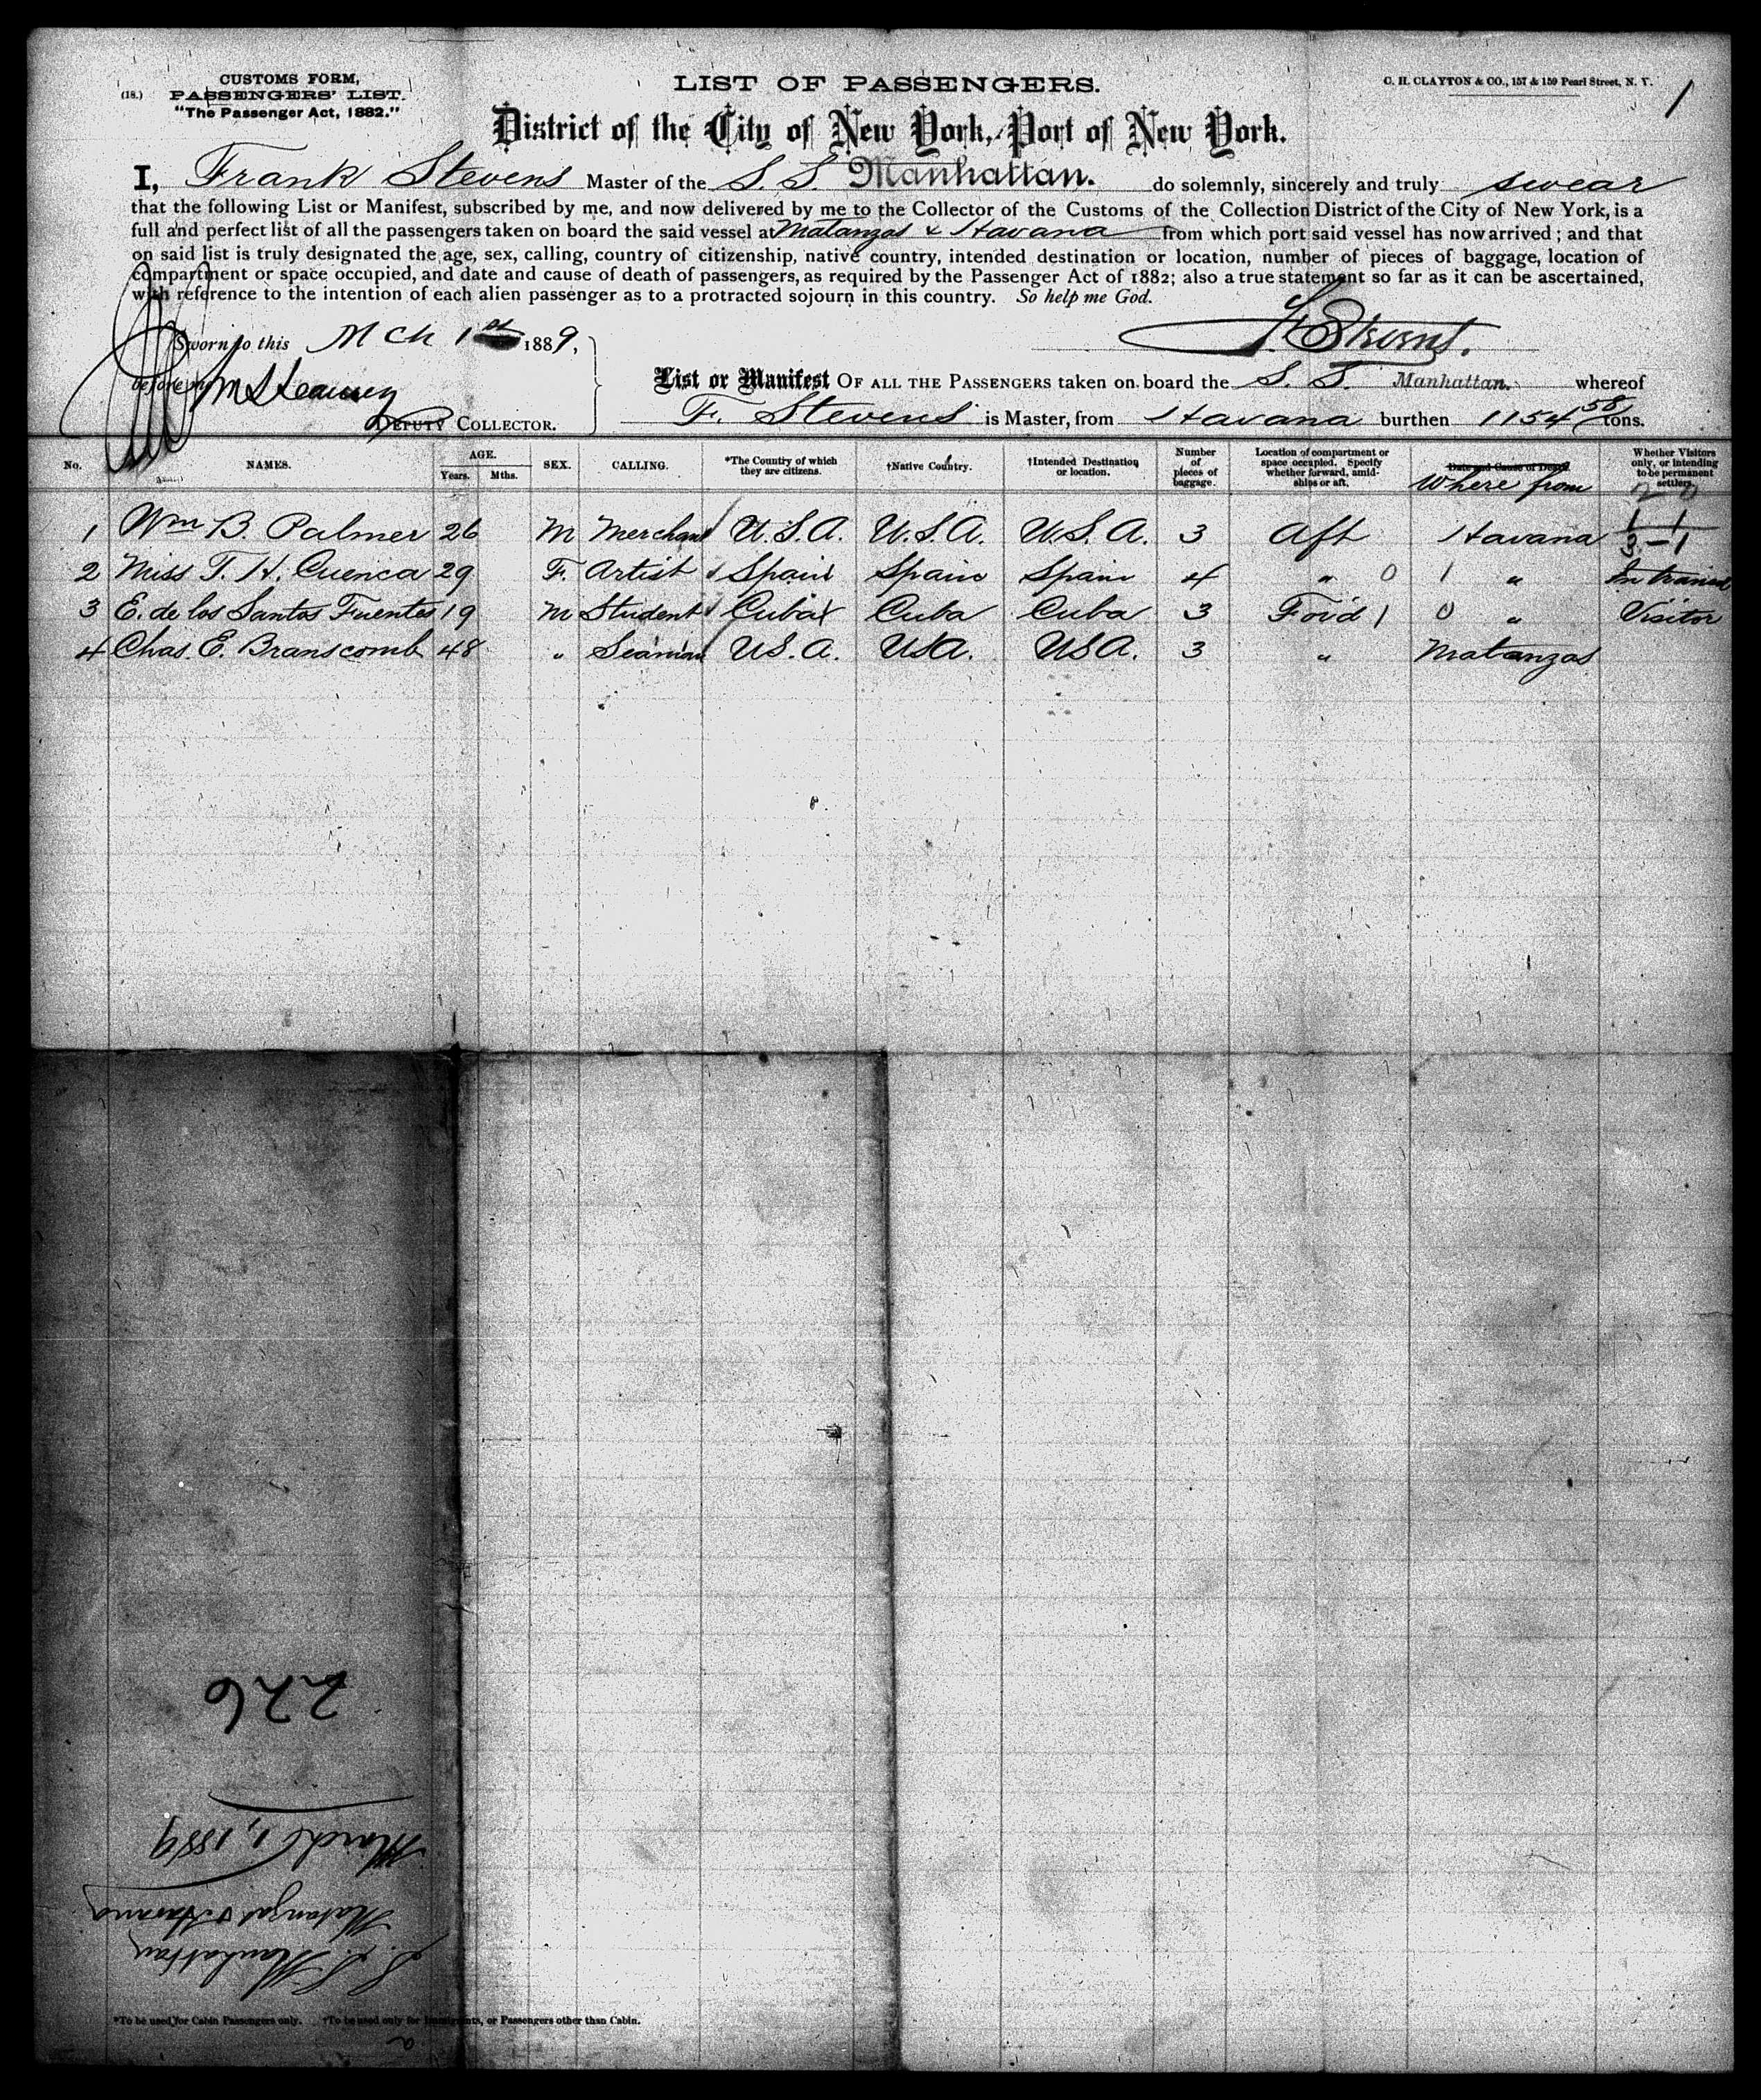 CUSTOMS FORM,
(18.) PASSENGERS' LIST.
"The Passenger Act, 1882."
LIST OF PASSENGERS.
C. H. CLAYTON & CO., 157 & 159 Pearl Street, N. Y.
1
District of the City of New York, Port of New York.
I, Frank Stevens Master of the S. S. Manhattan. do solemnly, sincerely and truly swear
that the following List or Manifest, subscribed by me, and now delivered by me to the Collector of the Customs of the Collection District of the City of New York, is a
full and perfect list of all the passengers taken on board the said vessel at Matanzas & Havana from which port said vessel has now arrived; and that
on said list is truly designated the age, sex, calling, country of citizenship, native country, intended destination or location, number of pieces of baggage, location of
compartment or space occupied, and date and cause of death of passengers, as required by the Passenger Act of 1882; also a true statement so far as it can be ascertained,
with reference to the intention of each alien passenger as to a protracted sojourn in this country. So help me God.
Sworn to this Mch 1st 1889,
F. Stevens.
before me
DEPUTY COLLECTOR.
List or Manifest OF ALL THE PASSENGERS taken on board the S. S. Manhattan. whereof
F. Stevens is Master, from Havana burthen 1154 58/ tons.
No. NAMES. AGE. Years. Mths. SEX. CALLING. *The Country of which they are citizens. †Native Country. †Intended Destination or location. Number of pieces of baggage. Location of compartment or space occupied. Specify whether forward, amidships or aft. Date and Cause of Death. Where from Whether Visitors only, or intending to be permanent settlers.
1 Wm B. Palmer 26 M Merchant U.S.A. U.S.A. U.S.A. 3 Aft Havana
2 Miss T. H. Cuenca 29 F. Artist Spain Spain Spain 4 " 0 1 " In transit
3 E. de los Santos Fuentes 19 M Student Cuba Cuba Cuba 3 For'd 1 0 " Visitor
4 Chas. E. Branscomb 48 " Seaman U.S.A. USA. USA. 3 " Matanzas
226
March 1, 1889
Matanzas & Havana
S. S. Manhattan
*To be used for Cabin Passengers only. †To be used only for Immigrants, or Passengers other than Cabin.